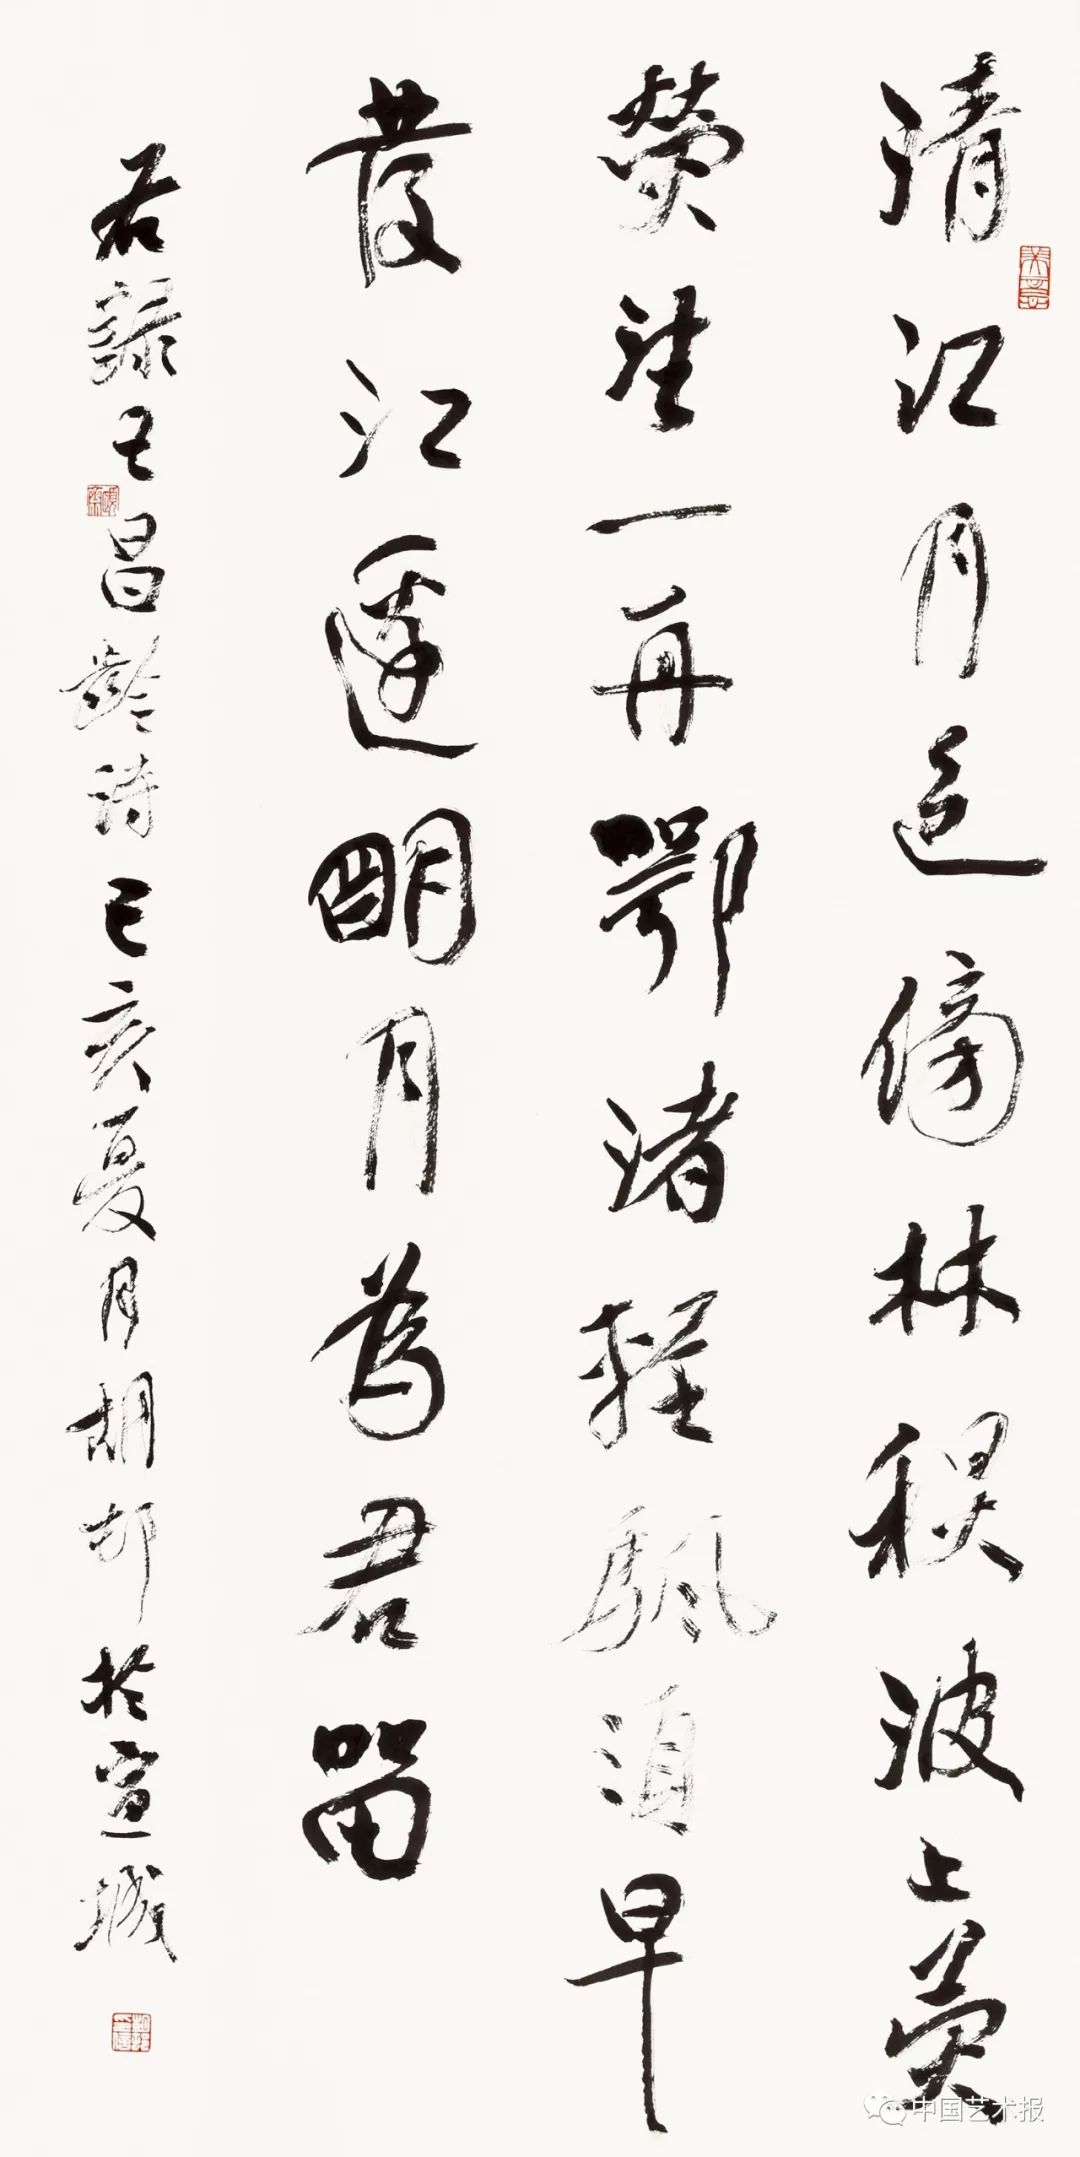 清江月色傍林秋波上熒
熒望一舟鄂渚輕颿湏早
發江邊朙月為君留
右録王昌齡詩己亥夏月胡於宣城
中国艺术报